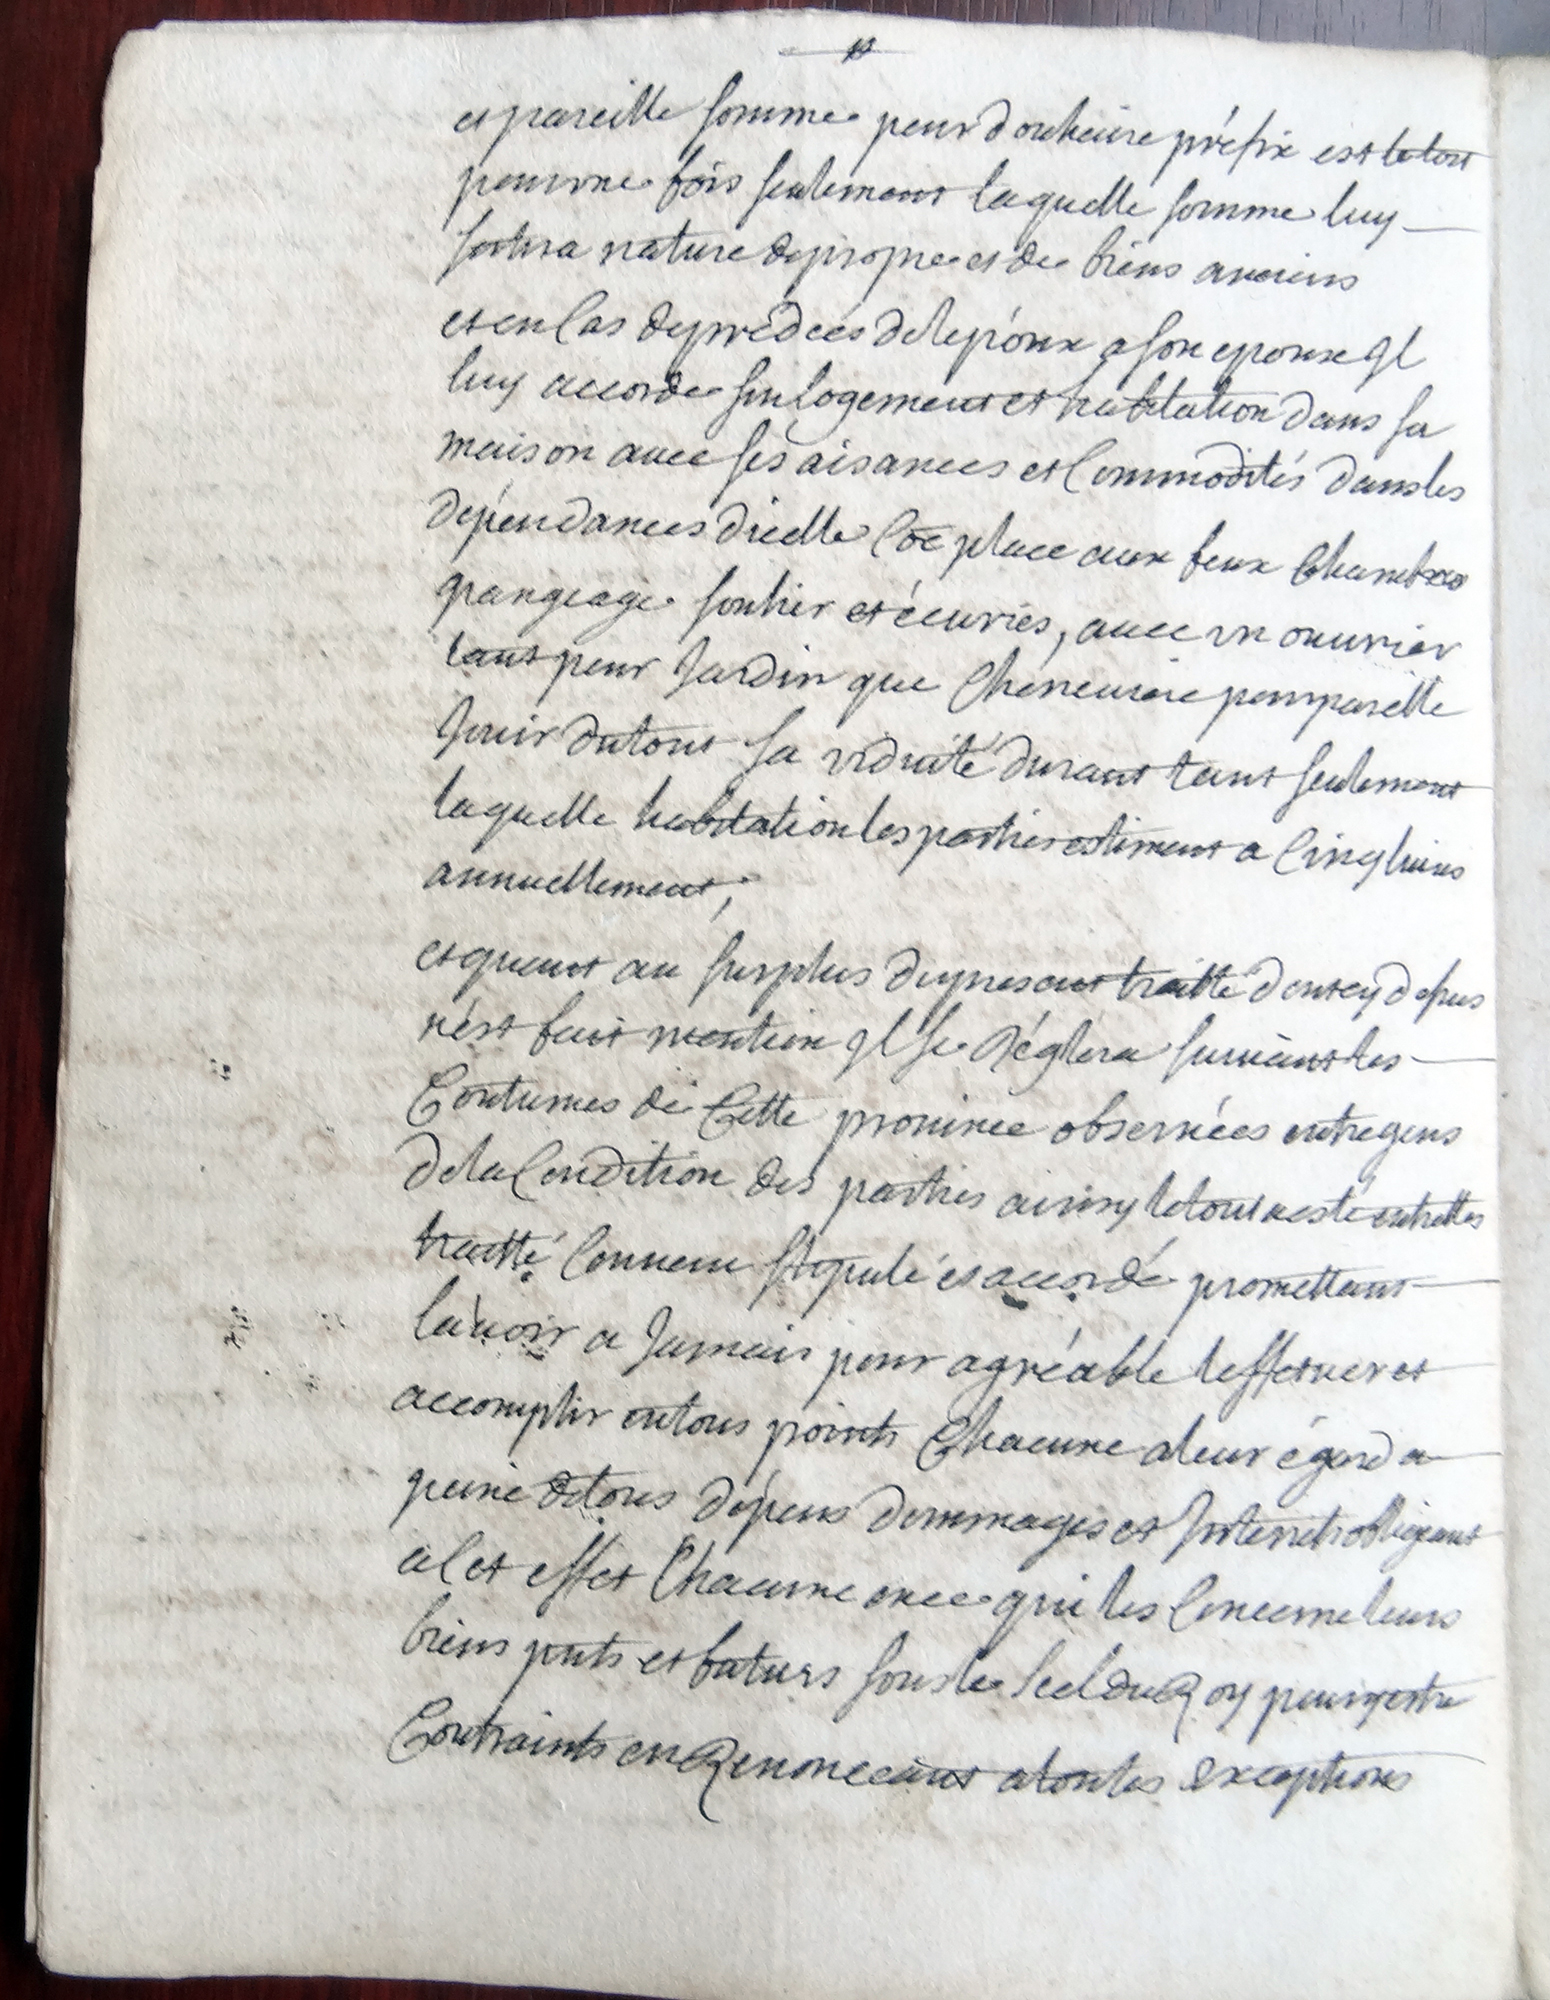 et pareille somme pour douhaire préfix est le tout
pour vne fois seulement laquelle somme luy
sortira nature de propre et de biens anciens
et en Cas de prédeces de lepóux a son epouse Jl
luy accorde son logement et habitation dans sa
maison auec ses aisances et Commodités dans les
dépendances d'icelle place aux feux Chambre
grangeage soulier et écuries, auec vn ouurier
tant pour Jardin que Cheneuiere pour par elle
Jouir du tout sa viduité durant tant seulement
laquelle habitation les parties estiment a Cinq liures
annuellement;
et quant au surplus du present traitté dont cy depus
n'est fait mention Jl se Réglera suiuant les
Coutumes de Cette prouince obseruées entre gens
de la Condition des parties ainsy le tout a esté entrelles
traitté Conuenu stipulé et accordé promettans
lauoir a Jamais pour agréable leffetuer et
accomplir en tous points Chacune a leur égard a
peine de tous dépens dommages et Jnterrets obligeant
a Cet effet Chacune en ce qui les Concerne leurs
biens pnts et futurs sous le scel du Roy pour y estre
Contraints en Renonceant a toutes exceptions